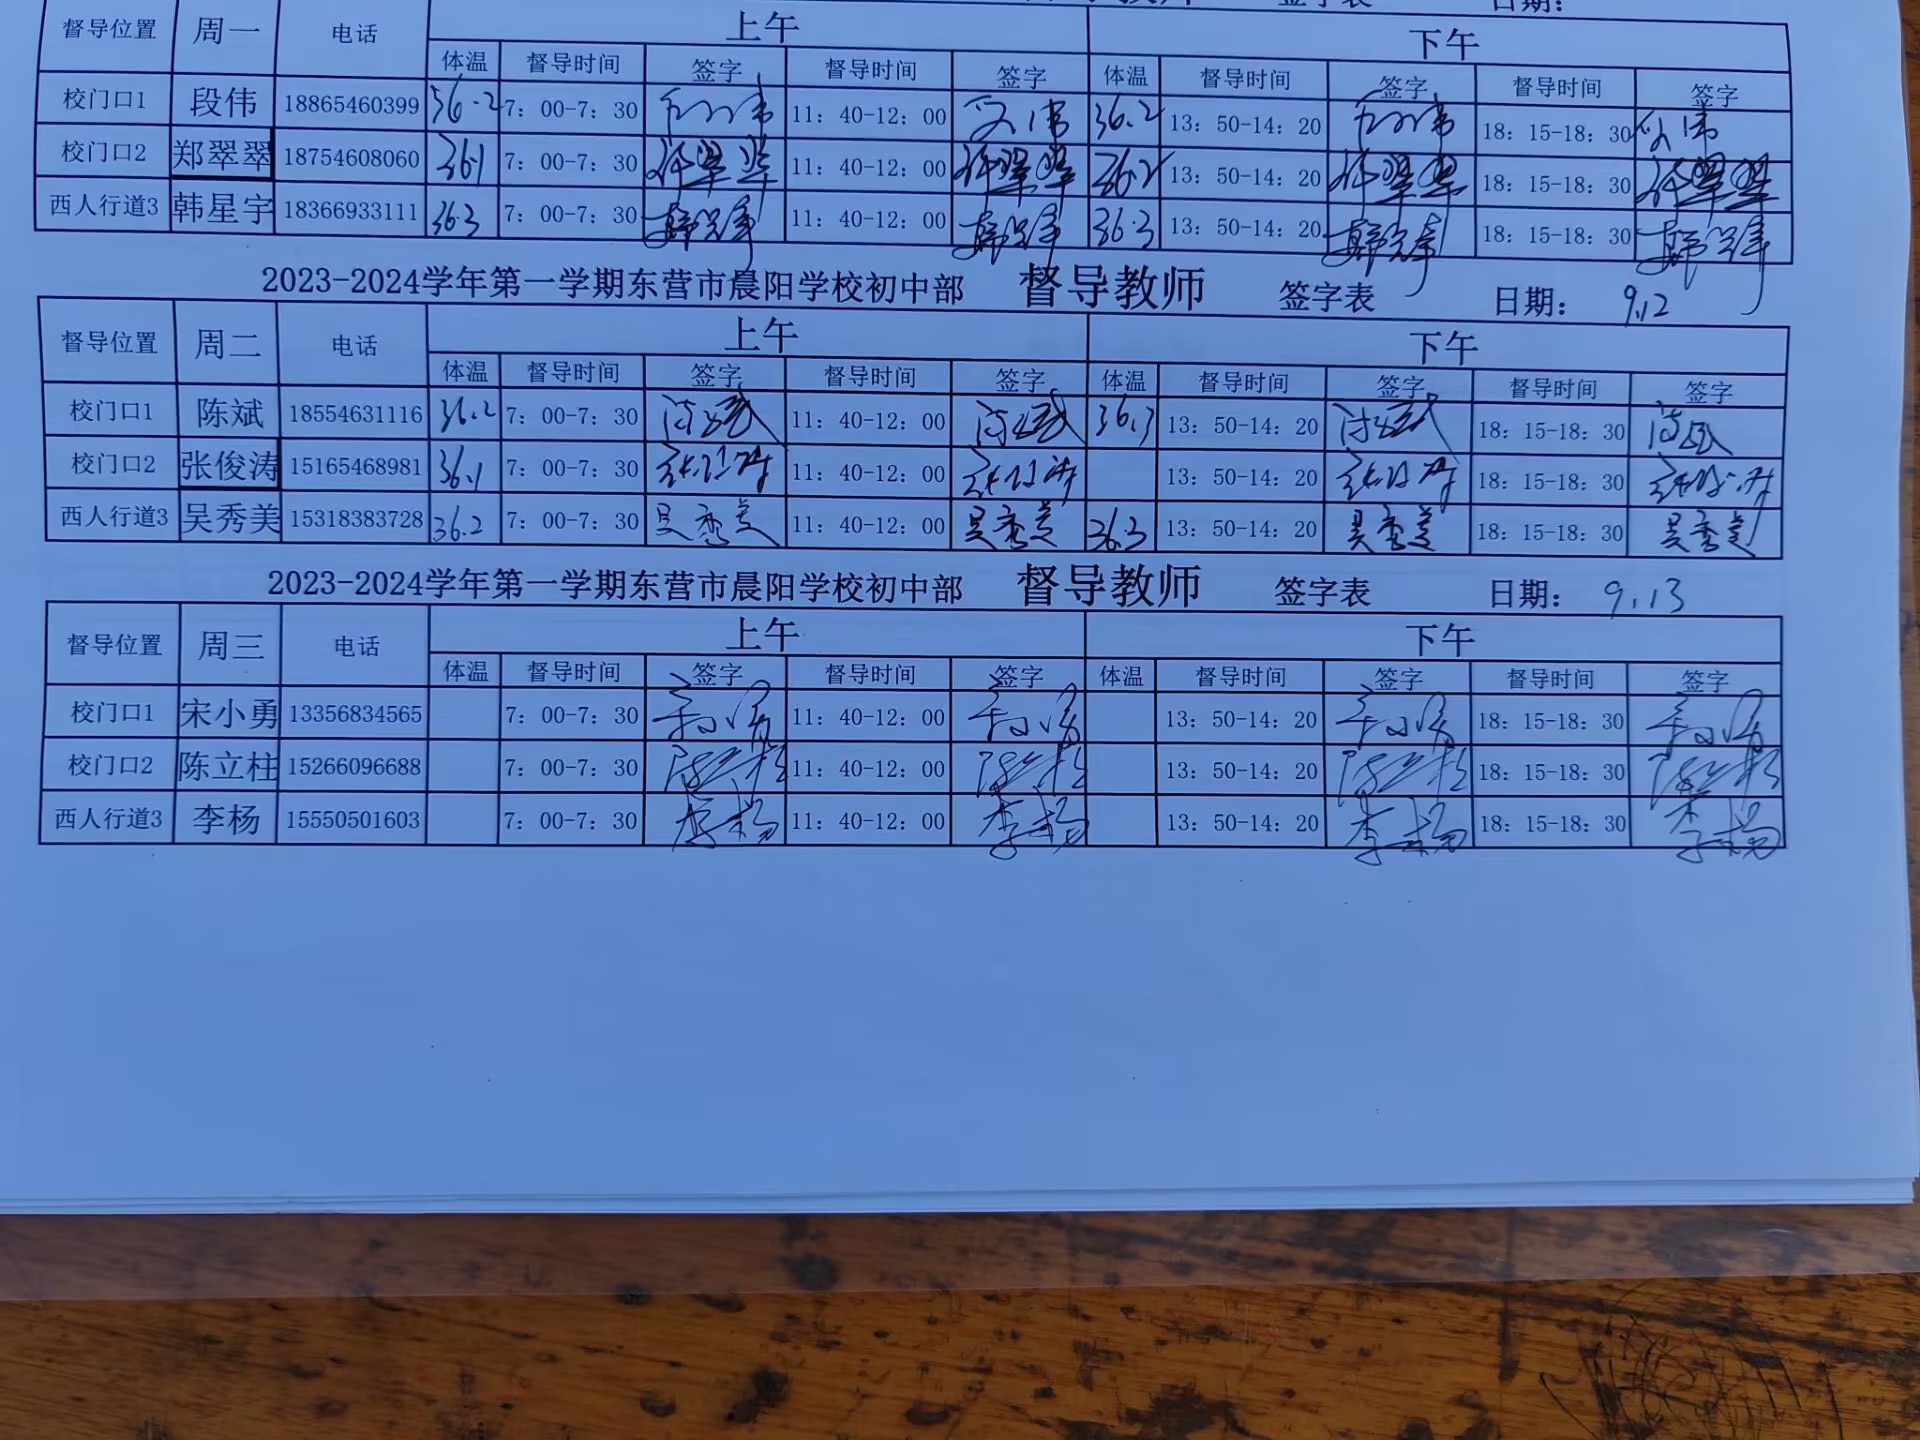 签字表 日期：
督导位置 周一 电话 上午 下午
体温 督导时间 签字 督导时间 签字 体温 督导时间 签字 督导时间 签字
校门口1 段伟 18865460399 36.2 7：00-7：30 11：40-12：00 36.2 13：50-14：20 18：15-18：30
校门口2 郑翠翠 18754608060 36.1 7：00-7：30 郑翠翠 11：40-12：00 郑翠翠 36.2 13：50-14：20 郑翠翠 18：15-18：30 郑翠翠
西人行道3 韩星宇 18366933111 36.3 7：00-7：30 11：40-12：00 36.3 13：50-14：20 18：15-18：30
2023-2024学年第一学期东营市晨阳学校初中部 督导教师 签字表 日期： 9.12
督导位置 周二 电话 上午 下午
体温 督导时间 签字 督导时间 签字 体温 督导时间 签字 督导时间 签字
校门口1 陈斌 18554631116 36.2 7：00-7：30 陈斌 11：40-12：00 陈斌 36.3 13：50-14：20 陈斌 18：15-18：30 陈斌
校门口2 张俊涛 15165468981 36.1 7：00-7：30 张俊涛 11：40-12：00 张俊涛 13：50-14：20 张俊涛 18：15-18：30 张俊涛
西人行道3 吴秀美 15318383728 36.2 7：00-7：30 吴秀美 11：40-12：00 吴秀美 36.3 13：50-14：20 吴秀美 18：15-18：30 吴秀美
2023-2024学年第一学期东营市晨阳学校初中部 督导教师 签字表 日期： 9.13
督导位置 周三 电话 上午 下午
体温 督导时间 签字 督导时间 签字 体温 督导时间 签字 督导时间 签字
校门口1 宋小勇 13356834565 7：00-7：30 宋小勇 11：40-12：00 宋小勇 13：50-14：20 宋小勇 18：15-18：30 宋小勇
校门口2 陈立柱 15266096688 7：00-7：30 陈立柱 11：40-12：00 陈立柱 13：50-14：20 陈立柱 18：15-18：30 陈立柱
西人行道3 李杨 15550501603 7：00-7：30 李杨 11：40-12：00 李杨 13：50-14：20 李杨 18：15-18：30 李杨